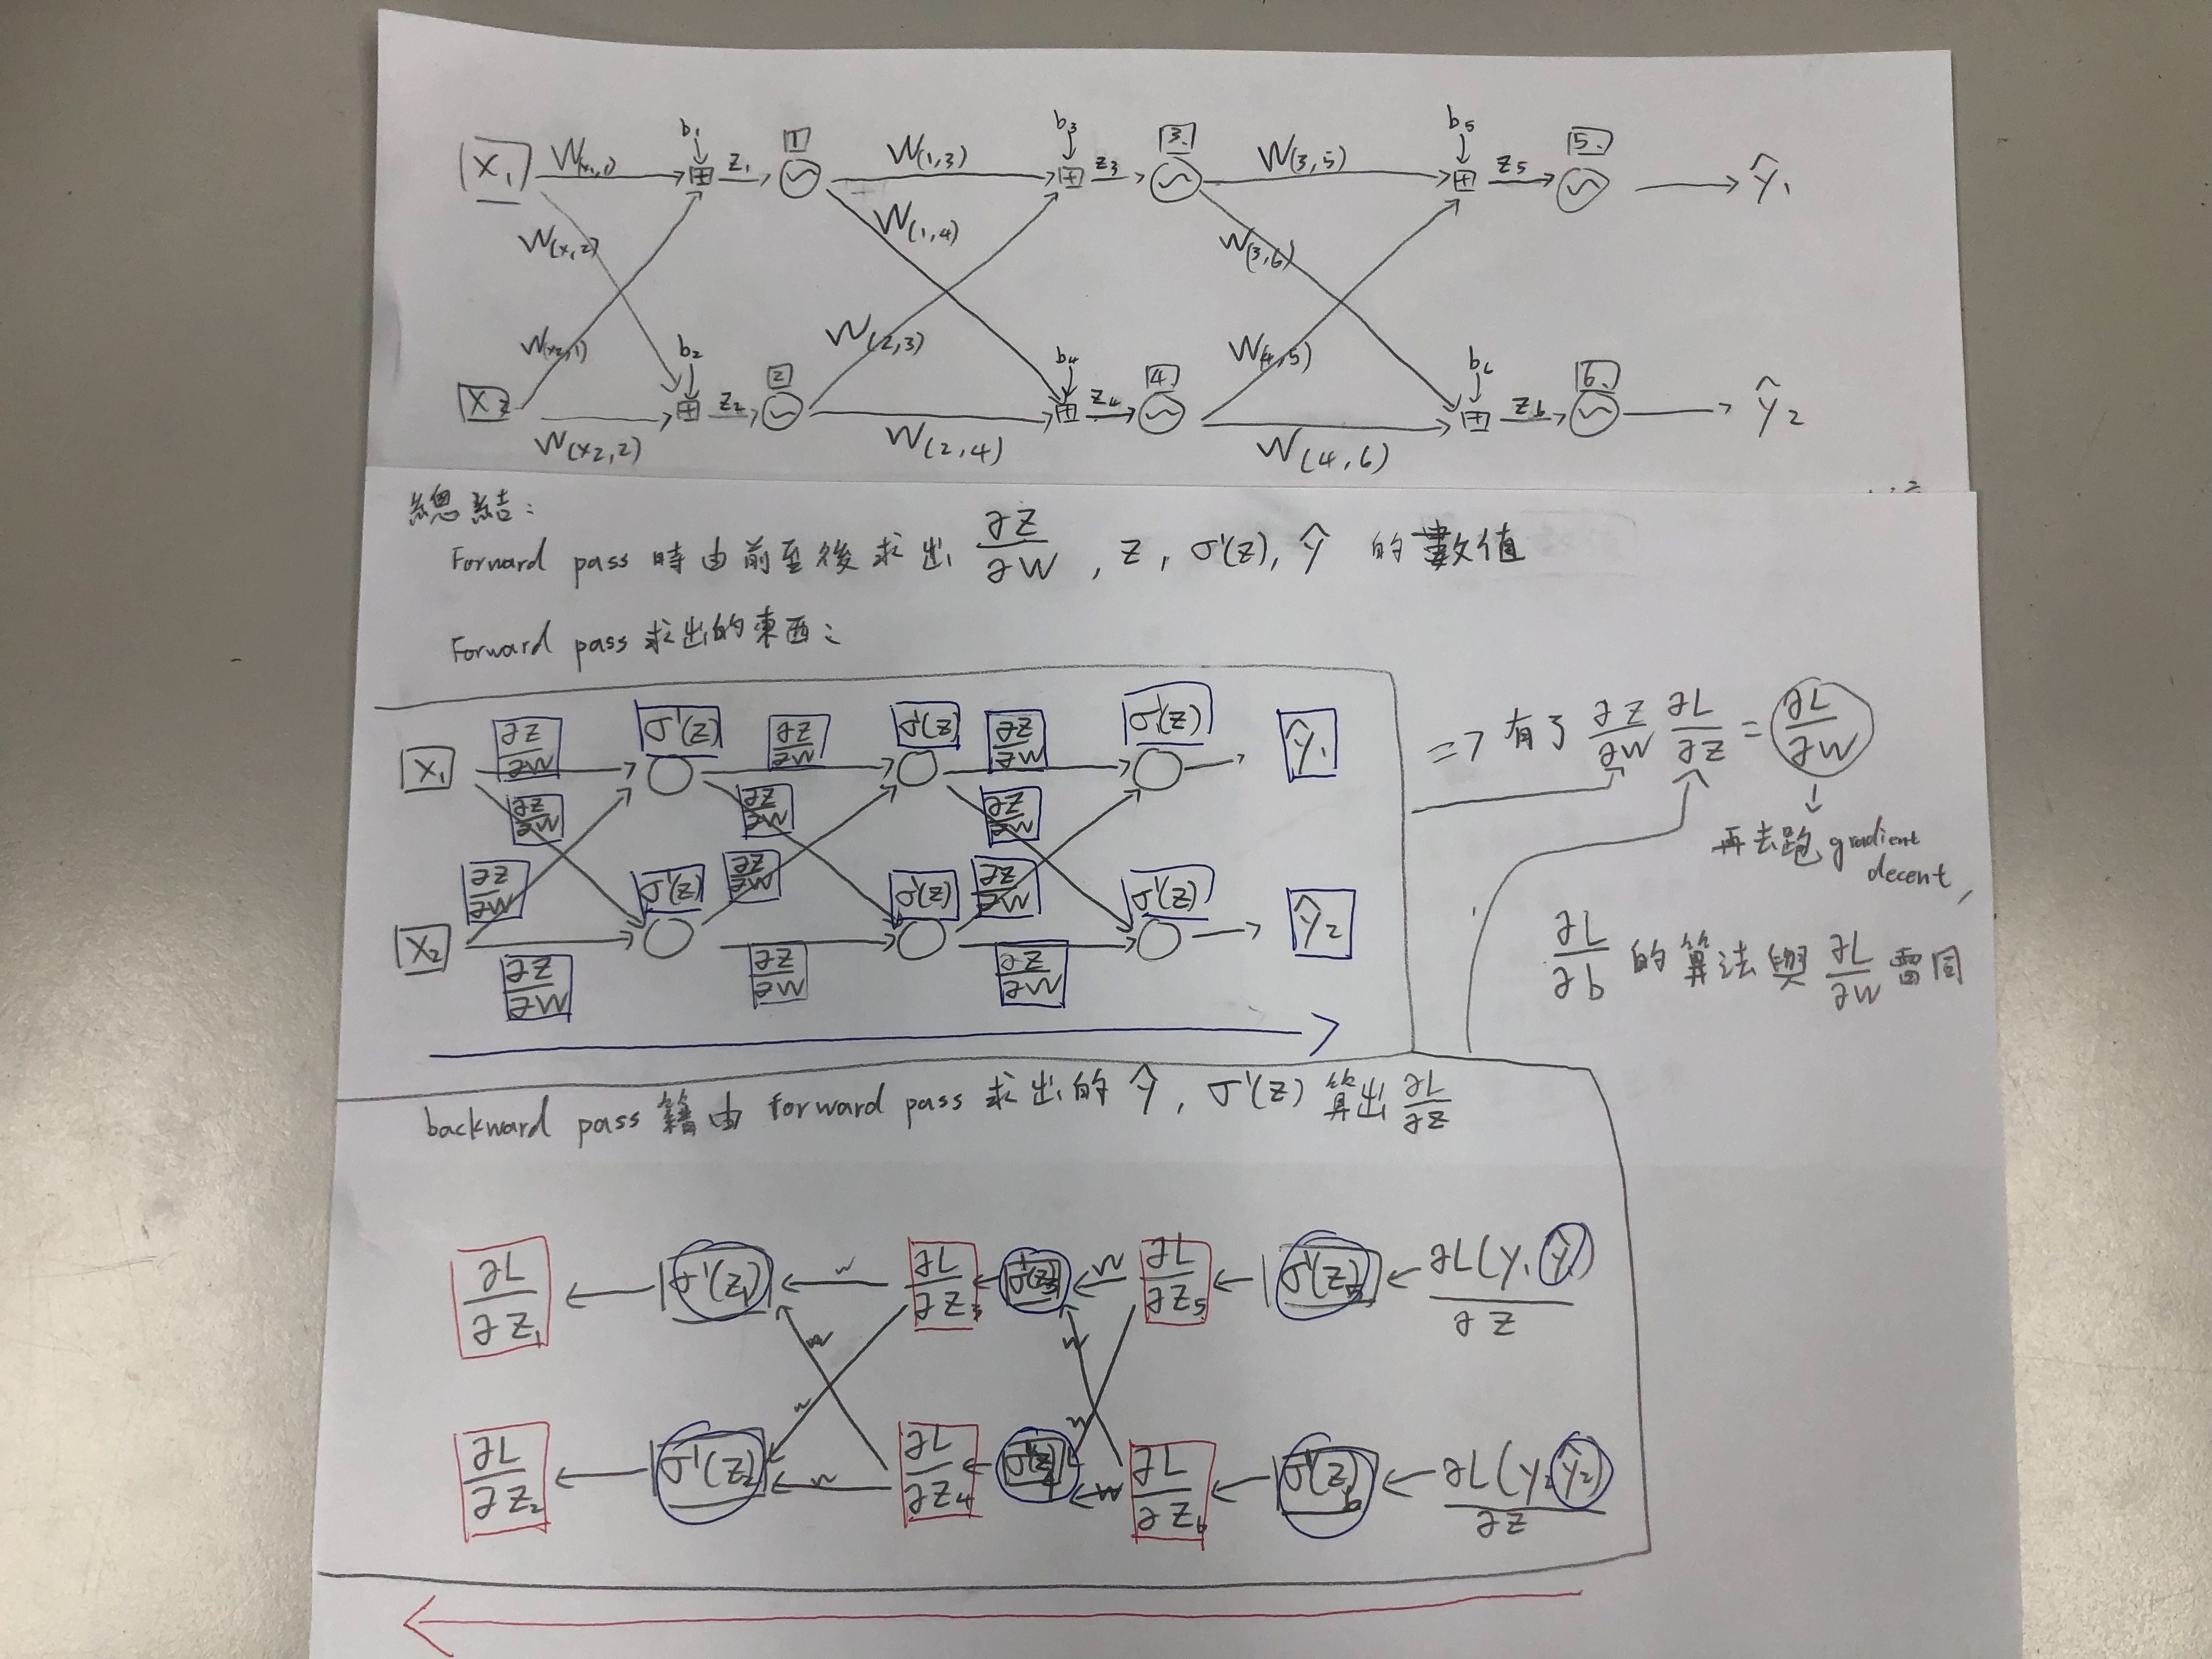 b₁ 1 b₃ 3. b₅ 5.
X₁ W(x₁,1) + z₁ W(1,3) + z₃ W(3,5) + z₅ ŷ₁
W(x,2) W(1,4) W(3,6)
W(x₂,1) b₂ 2 W(2,3) b₄ 4. W(4,5) 6.
X₂ + z₂ + z₄ + z₆ ŷ₂
W(x₂,2) W(2,4) W(4,6)
總結:
Forward pass 時由前至後求出 ∂z/∂w, z, σ'(z), ŷ 的數值
Forward pass 求出的東西:
σ'(z) σ'(z) σ'(z)
X₁ ∂z/∂w ∂z/∂w ∂z/∂w ŷ₁
∂z/∂w ∂z/∂w ∂z/∂w
∂z/∂w ∂z/∂w ∂z/∂w
σ'(z) σ'(z) σ'(z)
X₂ ŷ₂
∂z/∂w ∂z/∂w ∂z/∂w
=> 有了 ∂z/∂w ∂L/∂z = ∂L/∂w
再去跑 gradient
decent,
∂L/∂b 的算法與 ∂L/∂w 雷同
backward pass 籍由 forward pass 求出的 ŷ, σ'(z) 算出 ∂L/∂z
∂L/∂z₁ ← σ'(z₁) ← w ∂L/∂z₃ ← σ'(z₃) ← w ∂L/∂z₅ ← σ'(z)₅ ← ∂L(y₁ŷ₁)/∂z
w w
w w
∂L/∂z₂ ← σ'(z₂) ← w ∂L/∂z₄ ← σ'(z₄) ← w ∂L/∂z₆ ← σ'(z)₆ ← ∂L(y₂ŷ₂)/∂z